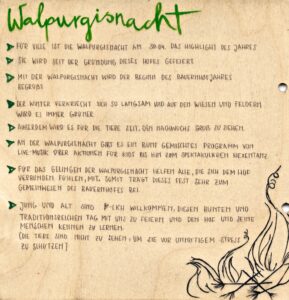 Walpurgisnacht
Für viele ist die Walpurgisnacht am 30.04. das Highlight des Jahres
Sie wird seit der Gründung dieses Hofes gefeiert
Mit der Walpurgisnacht wird der Beginn des Bauernhofjahres
begrüßt
Der Winter verkriecht sich so langsam und auf den Wiesen und Feldern
wird es immer grüner
Außerdem wird es für die Tiere Zeit, den Nachwuchs groß zu ziehen
An der Walpurgisnacht gibt es ein bunt gemischtes Programm von
Live-Musik über Aktionen für Kids bis hin zum spektakulären Hexentanz
Für das Gelingen der Walpurgisnacht helfen alle, die sich dem Hof
verbunden fühlen, mit. Somit trägt dieses Fest sehr zum
Gemeinwesen des Bauernhofes bei.
Jung und Alt sind herzlich willkommen, diesen bunten und
traditionsreichen Tag mit uns zu feiern und den Hof und seine
Menschen kennen zu lernen.
(Die Tiere sind nicht zu sehen, um sie vor unnötigem Stress
zu schützen)